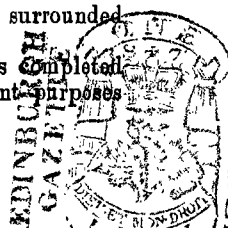 surrounded
s completed
nt purposes
EDINBURGH
GAZETTE
DIEU ET MON DROIT